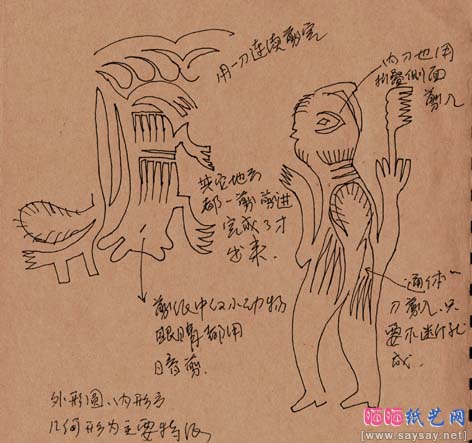 用一刀连续剪完
内刀也用
折叠侧面
剪入
其它地方
都一剪剪进
完成了才
出来.
通体一
刀剪入.只
要不迷行就
成.
剪纸中的小动物
眼睛都用
暗剪.
外形圆、内形方
几何形为主要特征
纸艺网
www.saysay.net